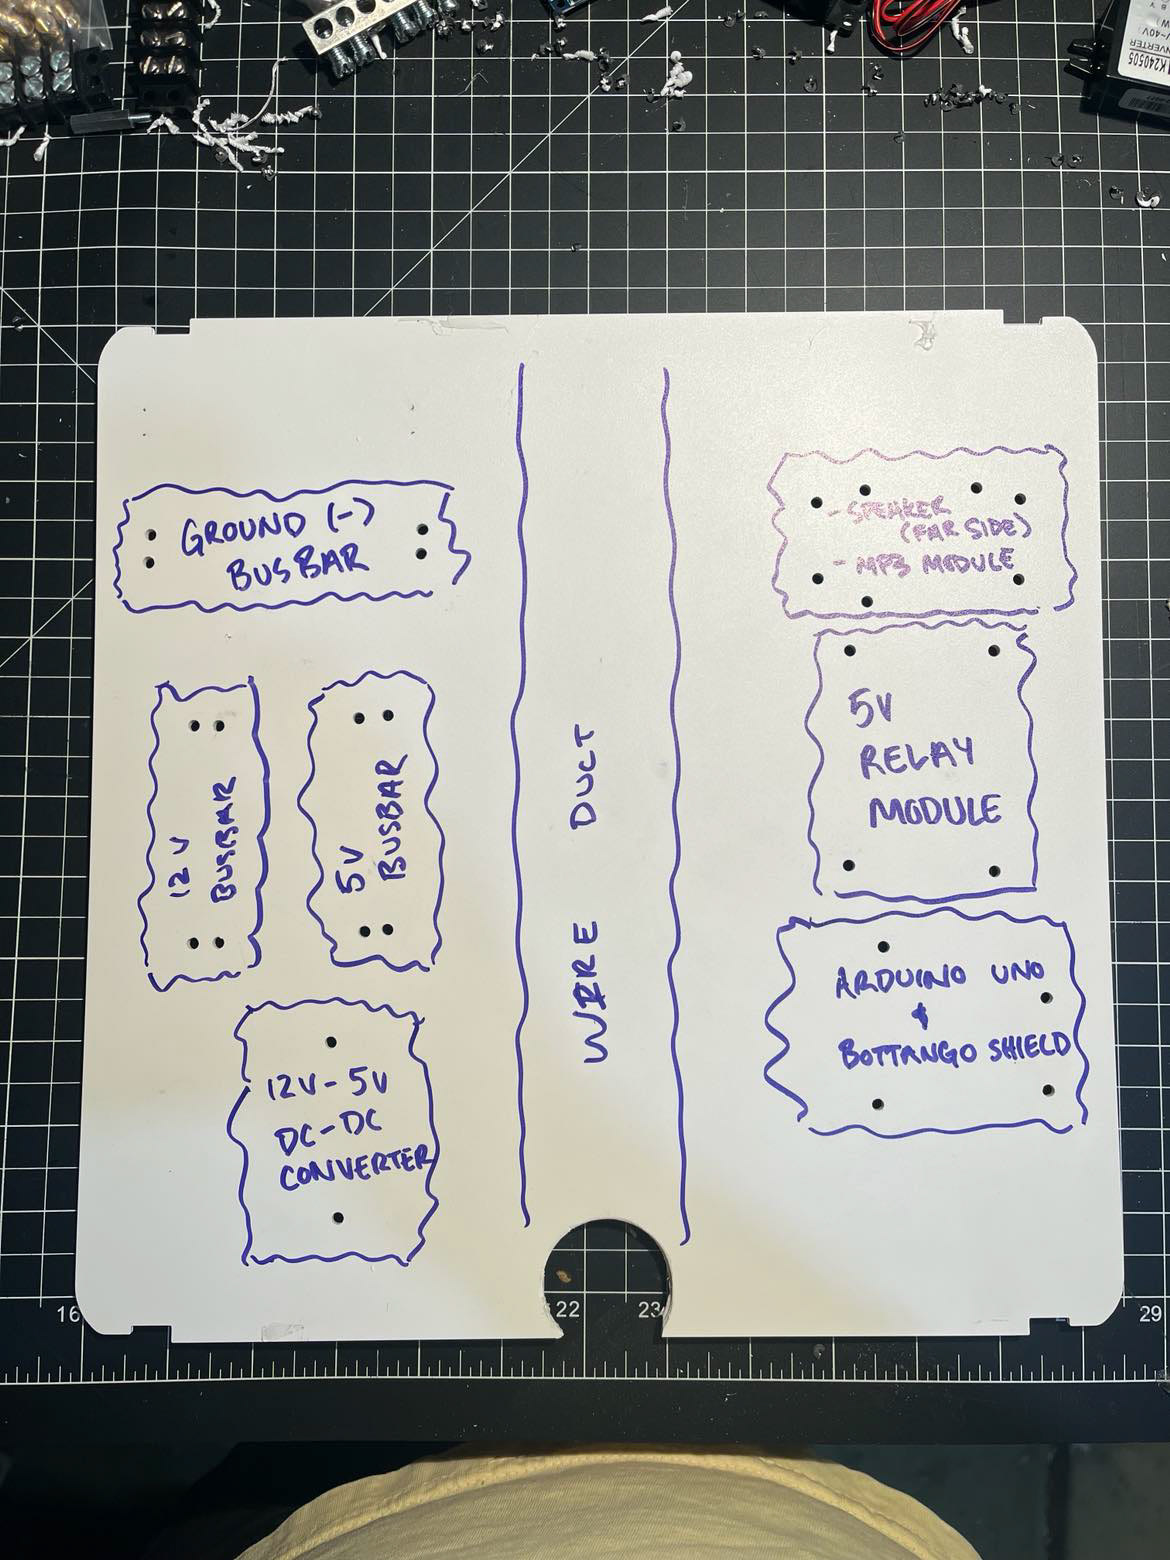 GROUND (-)
BUSBAR
12V
BUSBAR
5V
BUSBAR
12V-5V
DC-DC
CONVERTER
WIRE DUCT
- SPEAKER
(FAR SIDE)
- MP3 MODULE
5V
RELAY
MODULE
ARDUINO UNO
&
BOTTANGO SHIELD
16
22
23
29
1K240505